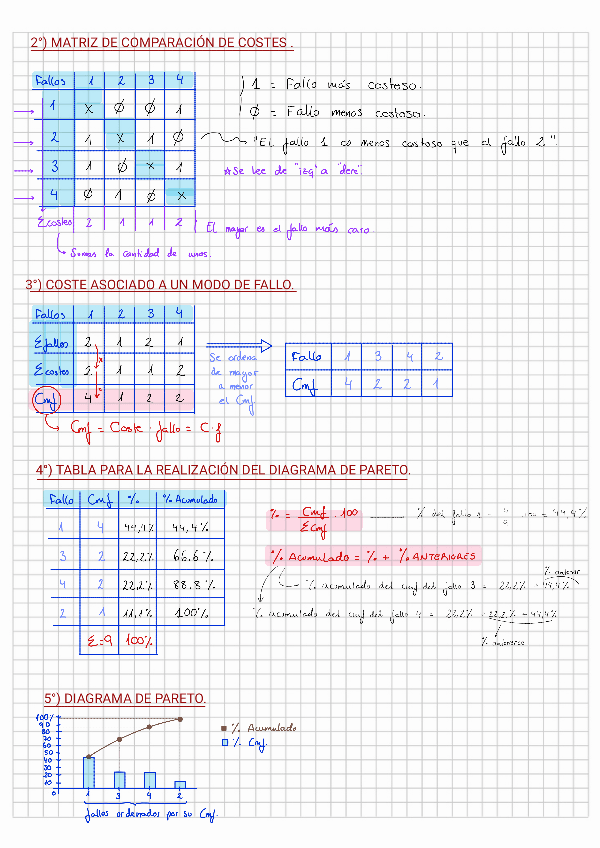 2°) MATRIZ DE COMPARACIÓN DE COSTES .
Fallos 1 2 3 4
1 x ∅ ∅ 1
2 1 x 1 ∅
3 1 ∅ x 1
4 ∅ 1 ∅ x
Σcostes 2 1 1 2
1 = Fallo más costoso.
∅ = Fallo menos costoso.
"El fallo 1 es menos costoso que el fallo 2".
★Se lee de "izq" a "dere".
El mayor es el fallo más caro
Sumas la cantidad de unos.
3°) COSTE ASOCIADO A UN MODO DE FALLO.
Fallos 1 2 3 4
Σfallos 2 1 2 1
Σcostes 2 1 1 2
Cmf 4 1 2 2
x
=
Se ordena
de mayor
a menor
el Cmf
Fallo 1 3 4 2
Cmf 4 2 2 1
Cmf = Coste · fallo = C·f
4°) TABLA PARA LA REALIZACIÓN DEL DIAGRAMA DE PARETO.
Fallo Cmf % % Acumulado
1 4 44,4% 44,4%
3 2 22,2% 66.6%
4 2 22,2% 88.8%
2 1 11,1% 100%
Σ=9 100%
% = Cmf / ΣCmf · 100
% del fallo = 44,4%
% Acumulado = % + % ANTERIORES
% anterior
% acumulado del cmf del fallo 3 = 22,2% 44,4%
% acumulado del cmf del fallo 4 = 22,2% 22,2% + 44,4%
% anteriores
5°) DIAGRAMA DE PARETO.
100%
90
80
70
60
50
40
30
20
10
0
1 3 4 2
% Acumulado
% Cmf.
fallos ordenados por su Cmf.